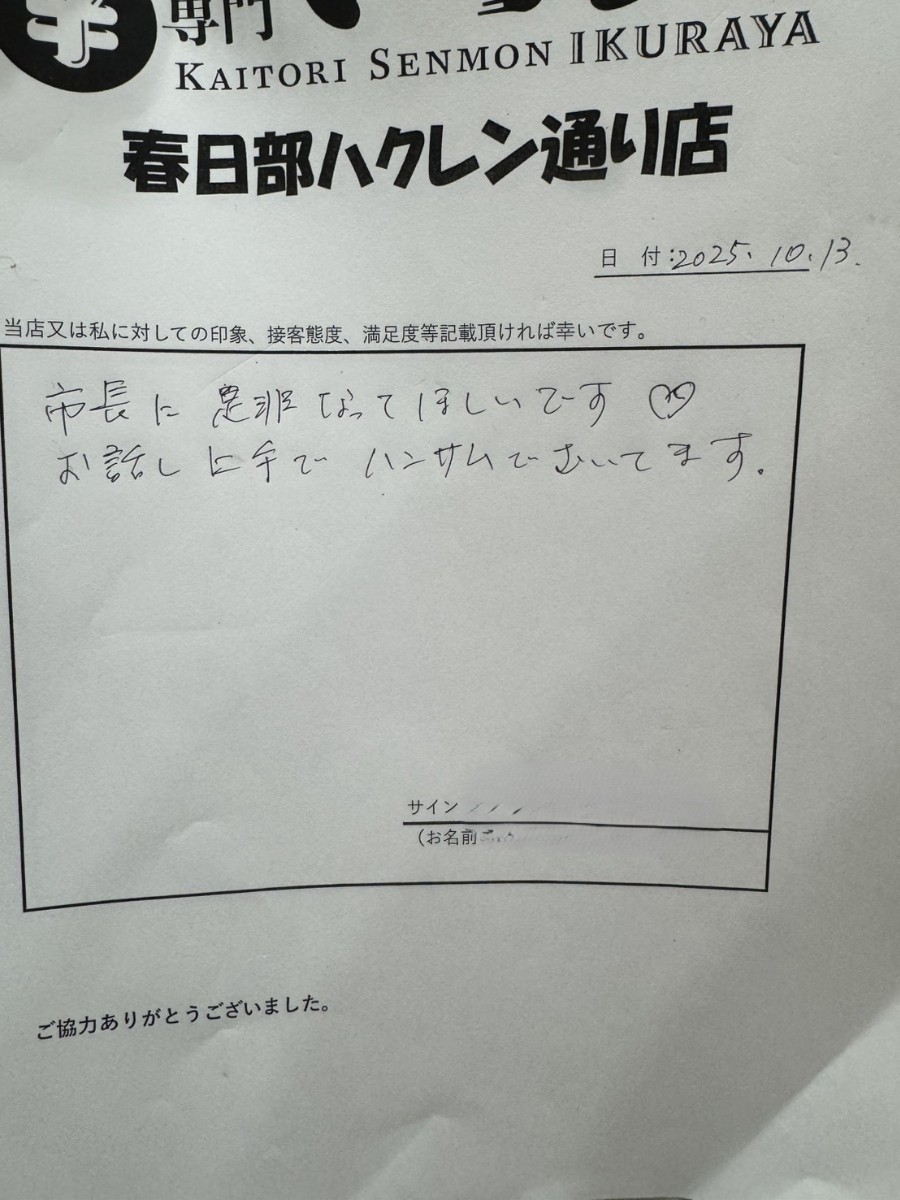 専門
KAITORI SENMON IKURAYA
春日部ハクレン通り店
日 付:2025.10.13.
当店又は私に対しての印象、接客態度、満足度等記載頂ければ幸いです。
市長に是非なってほしいです♡
お話し上手でハンサムでむいてます。
サイン
(お名前
ご協力ありがとうございました。